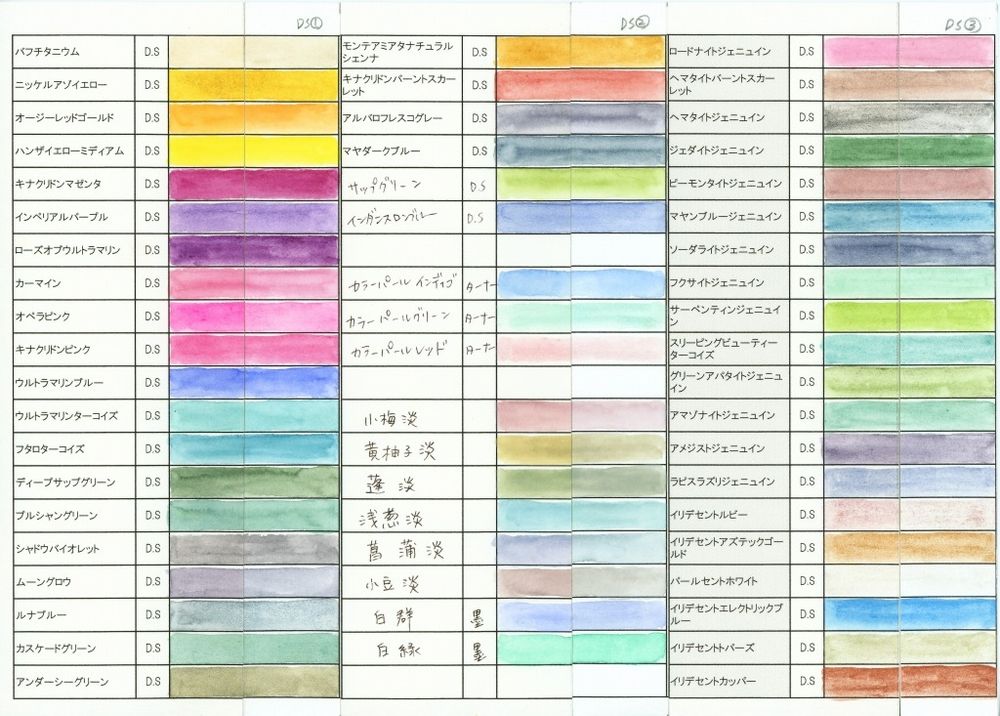 DS①
バフチタニウム D.S
ニッケルアゾイエロー D.S
オージーレッドゴールド D.S
ハンザイエローミディアム D.S
キナクリドンマゼンタ D.S
インペリアルパープル D.S
ローズオブウルトラマリン D.S
カーマイン D.S
オペラピンク D.S
キナクリドンピンク D.S
ウルトラマリンブルー D.S
ウルトラマリンターコイズ D.S
フタロターコイズ D.S
ディープサップグリーン D.S
プルシャングリーン D.S
シャドウバイオレット D.S
ムーングロウ D.S
ルナブルー D.S
カスケードグリーン D.S
アンダーシーグリーン D.S
DS②
モンテアミアタナチュラル
シェンナ D.S
キナクリドンバーントスカー
レット D.S
アルバロフレスコグレー D.S
マヤダークブルー D.S
サップグリーン D.S
インダンスロンブルー D.S
カラーパールインディゴ ターナー
カラーパールグリーン ターナー
カラーパールレッド ターナー
小梅淡
黄柚子淡
蓬淡
浅葱淡
菖蒲淡
小豆淡
白群 墨
白緑 墨
DS③
ロードナイトジェニュイン D.S
ヘマタイトバーントスカー
レット D.S
ヘマタイトジェニュイン D.S
ジェダイトジェニュイン D.S
ピーモンタイトジェニュイン D.S
マヤンブルージェニュイン D.S
ソーダライトジェニュイン D.S
フクサイトジェニュイン D.S
サーペンティンジェニュイ
ン D.S
スリーピングビューティー
ターコイズ D.S
グリーンアパタイトジェニュ
イン D.S
アマゾナイトジェニュイン D.S
アメジストジェニュイン D.S
ラピスラズリジェニュイン D.S
イリデセントルビー D.S
イリデセントアズテックゴー
ルド D.S
パールセントホワイト D.S
イリデセントエレクトリックブ
ルー D.S
イリデセントトパーズ D.S
イリデセントカッパー D.S